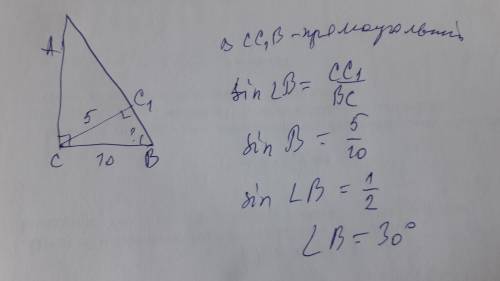 A
C₁
5
?
C
10
B
△ CC₁B – прямоугольний
sin ∠B = CC₁/BC
sin B = 5/10
sin ∠B = 1/2
∠B = 30°